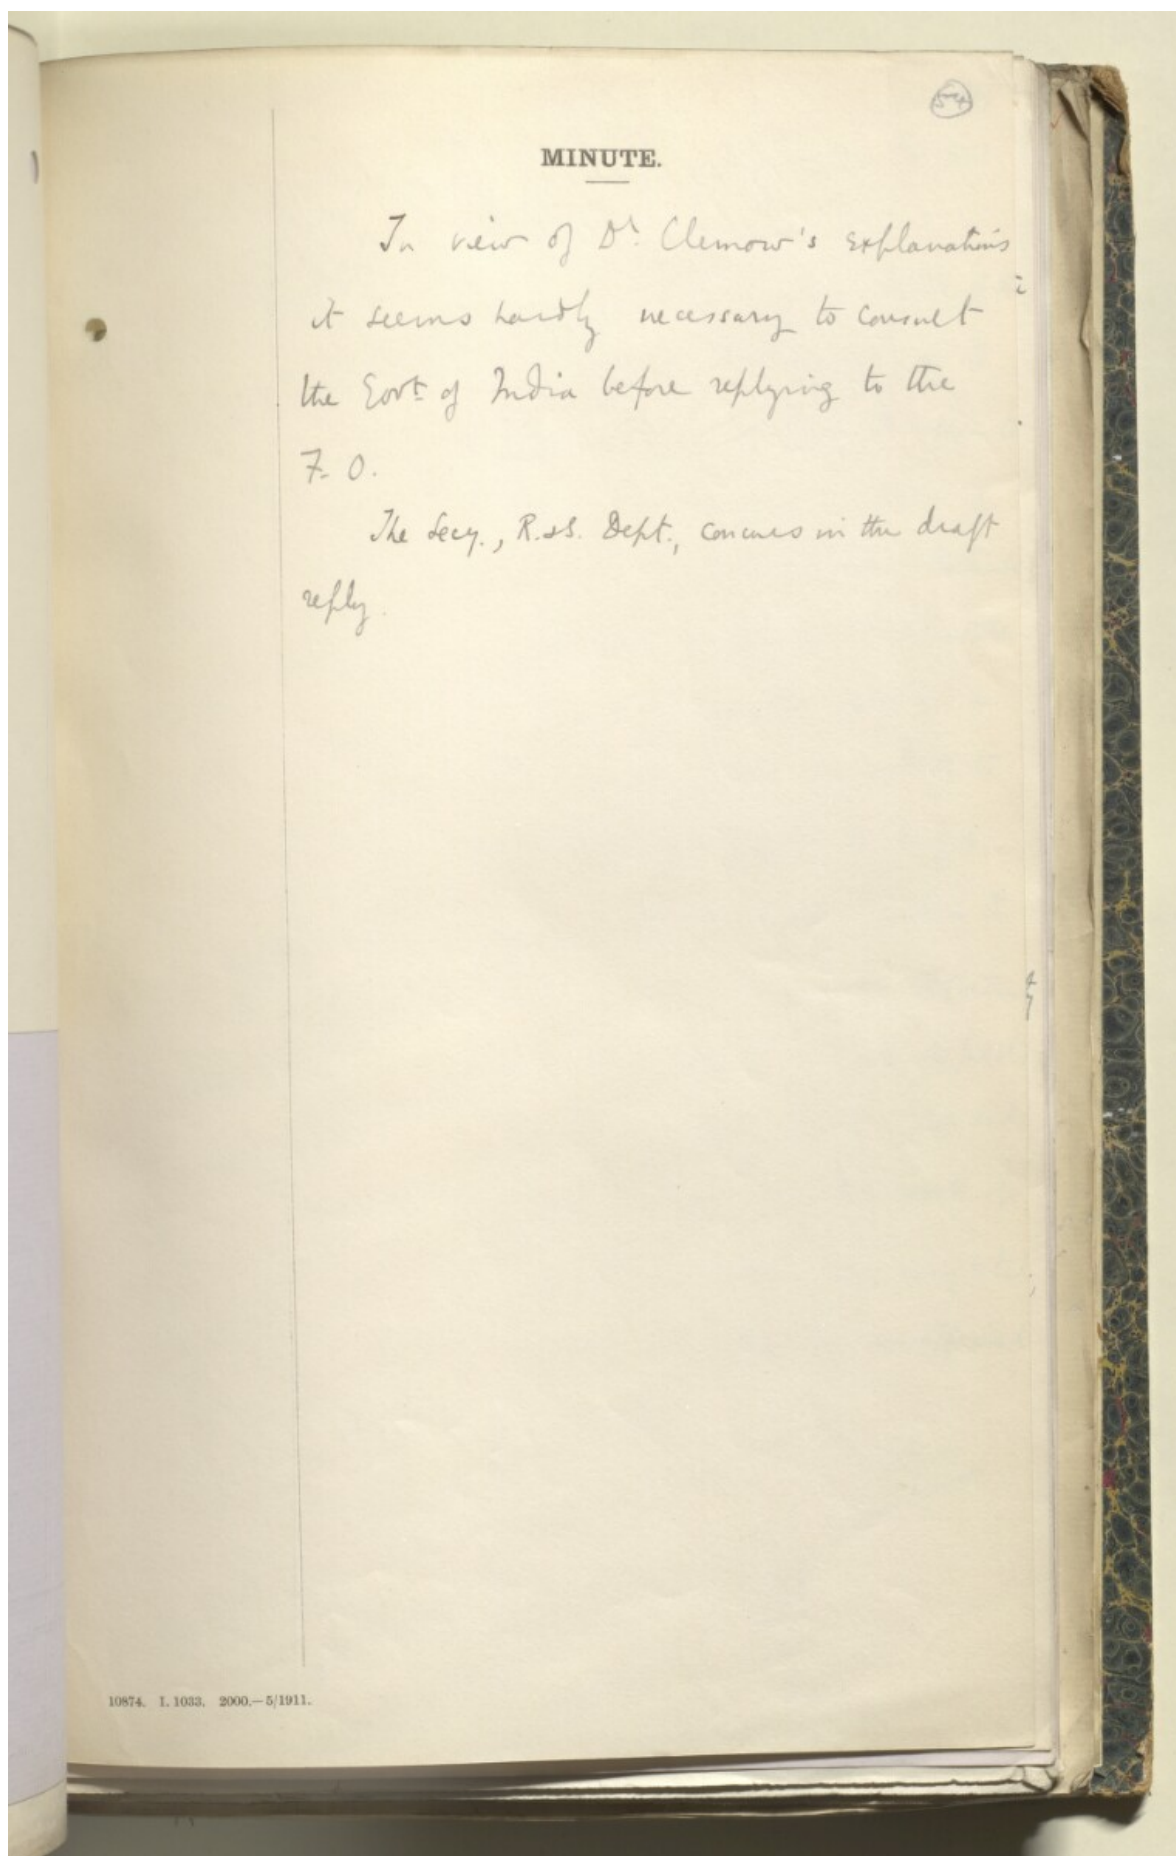 54
MINUTE.
In view of Dr. Clemow's explanations
it seems hardly necessary to consult
the Govt. of India before replying to the
F.O.
The Secy., R.&S. Dept., concurs in the draft
reply.
10874. I. 1033. 2000.—5/1911.